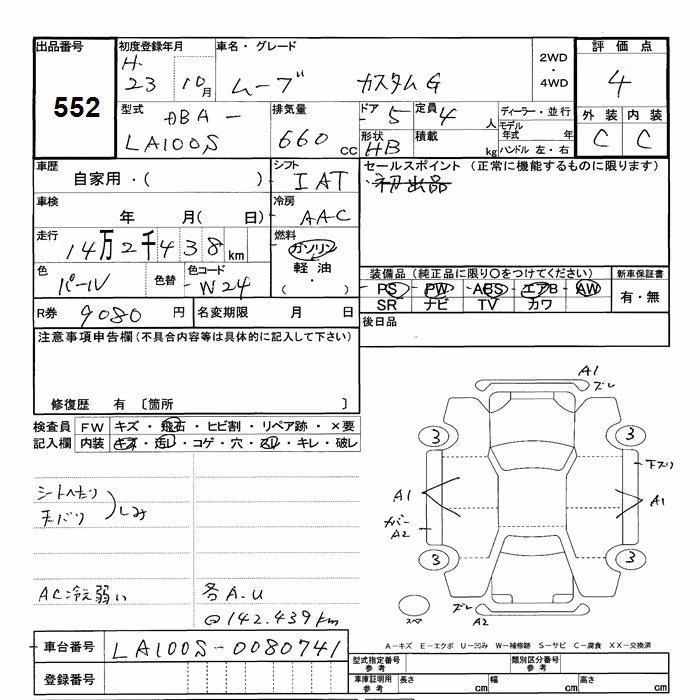 出品番号 初度登録年月 車名・グレード 評価点
552
H.
23 10月 ムーブ カスタムG
2WD
・
4WD
4
外装 内装
C C
型式 DBA-
LA100S
排気量
660 cc
ドア 5 定員 4 人
形状 HB 積載 kg
ディーラー・並行
モデル
年式 年
ハンドル 左・右
車歴
自家用・( )
シフト
IAT
セールスポイント (正常に機能するものに限ります)
・初出品
車検
年 月( 日)
冷房
AAC
走行
14万2千438km
燃料
ガソリン
軽油
( ・ )
色
パール
色替
色コード
W24
装備品(純正品に限り○をつけてください) 新車保証書
PS PW ABS エアB AW
SR ナビ TV カワ
有・無
R券 9080 円 名変期限 月 日
後日品
注意事項申告欄(不具合内容等は具体的に記入して下さい)
修復歴 有 〔箇所 〕
検査員 FW キズ・飛石・ヒビ割・リペア跡・×要
記入欄 内装 キズ・汚レ・コゲ・穴・スレ・キレ・破レ
シートへたり
天バリ
しみ
AC冷え弱い
各A.U
@142.439km
A1
ズレ
3 3
下ズリ
A1 A1
カバー
A2
3 3
スペア
ズレ
A2
A－キズ E－エクボ U－凹み W－補修跡 S－サビ C－腐食 XX－交換済
車台番号 LA100S-0080741
登録番号
型式指定番号
参考
類別区分番号
参考
車庫証明用
参考
長さ cm 幅 cm 高さ cm